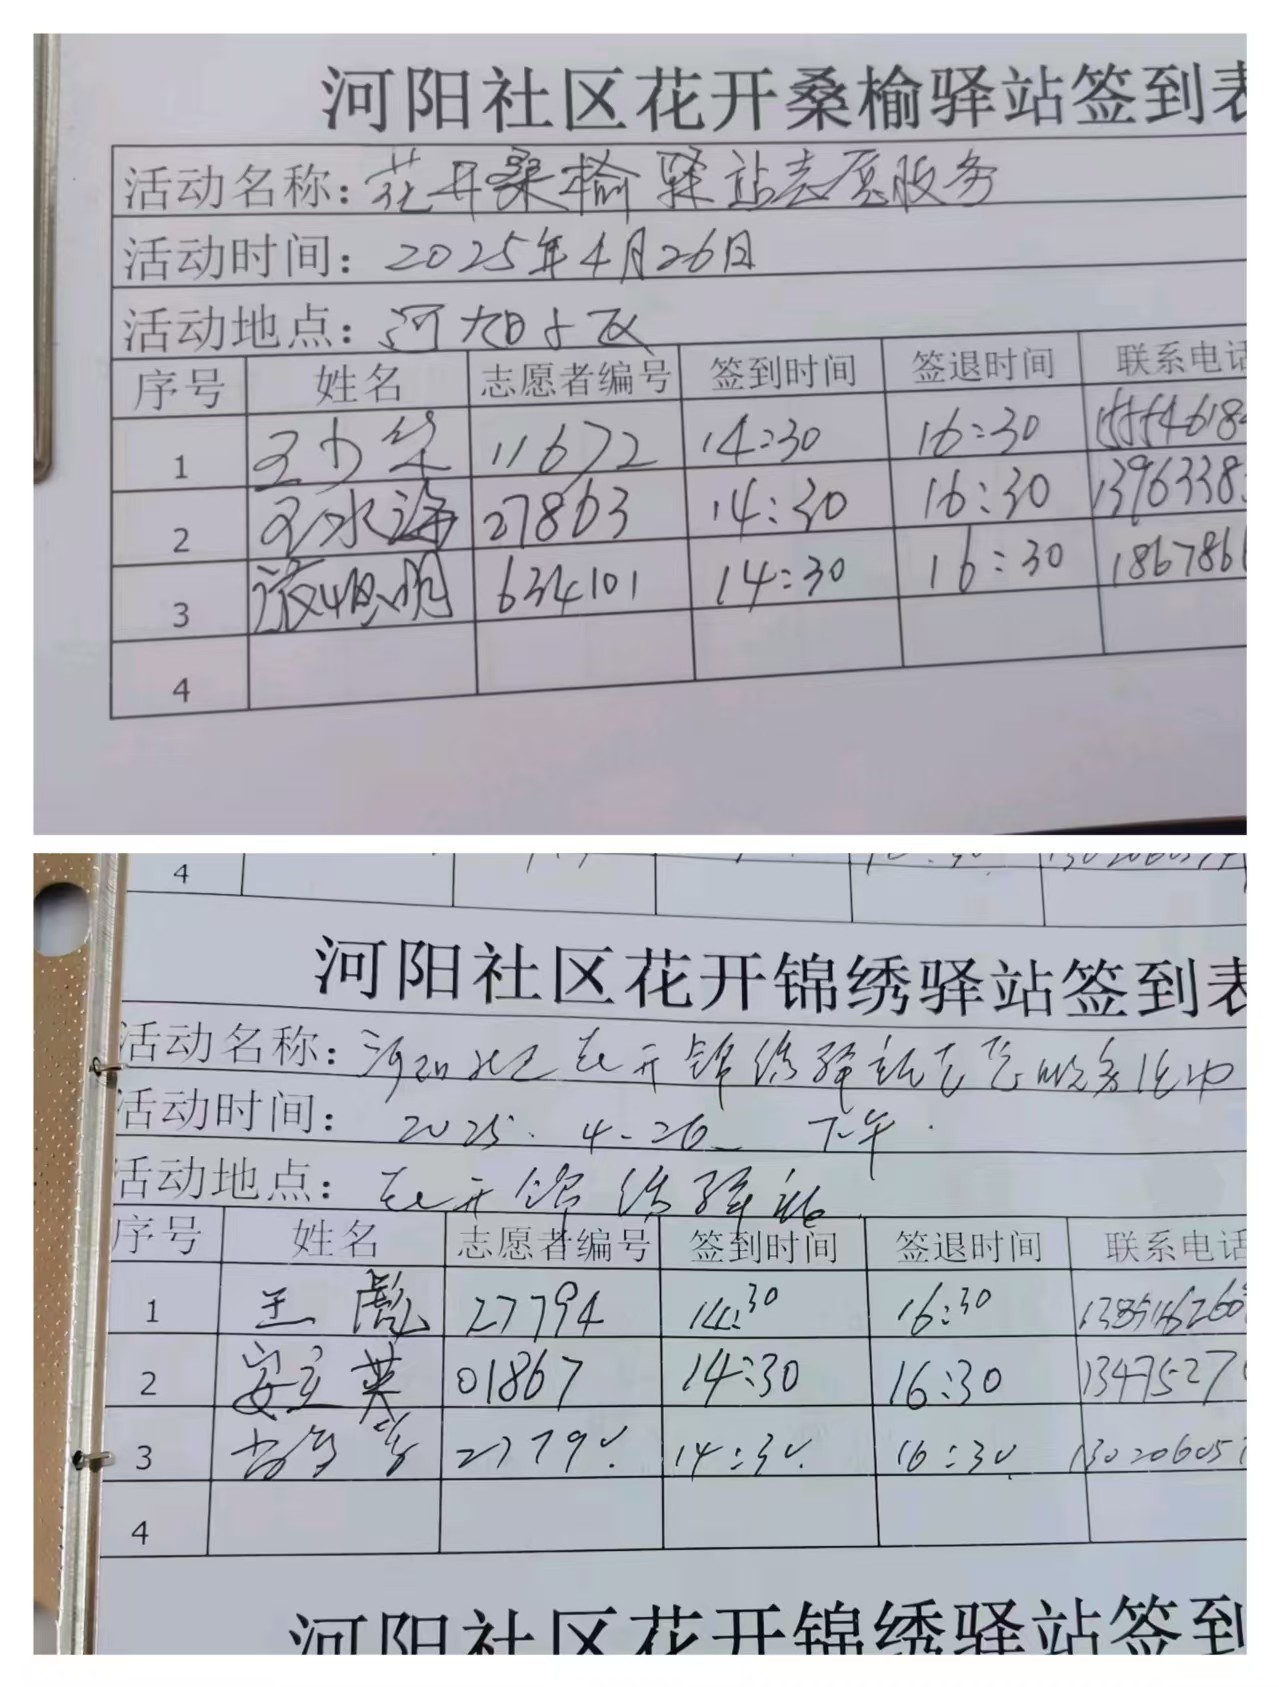 河阳社区花开桑榆驿站签到表
活动名称：花开桑榆驿站志愿服务
活动时间：2025年4月26日
活动地点：河阳社区
序号 姓名 志愿者编号 签到时间 签退时间 联系电话
1 王少华 11672 14:30 16:30 15554618
2 王水海 27863 14:30 16:30 1396338
3 634101 14:30 16:30 186786
4
4
河阳社区花开锦绣驿站签到表
活动名称：河阳社区花开锦绣驿站志愿服务活动
活动时间：2025.4.26 下午.
活动地点：花开锦绣驿站
序号 姓名 志愿者编号 签到时间 签退时间 联系电话
1 王彪 27794 14:30 16:30
2 安立英 01867 14:30 16:30 1347527
3 14:30 16:30 130206051
4
河阳社区花开锦绣驿站签到